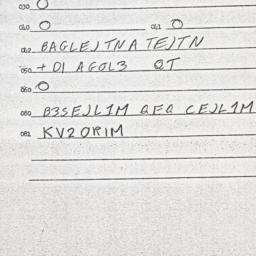 030 O
040 O 041 O
042 BAGLEJTNA TEJTN
050 + DI AGOL3 QT
060 O
080 B3SEJL1M QFQ CEJL1M
081 KV2ORIM